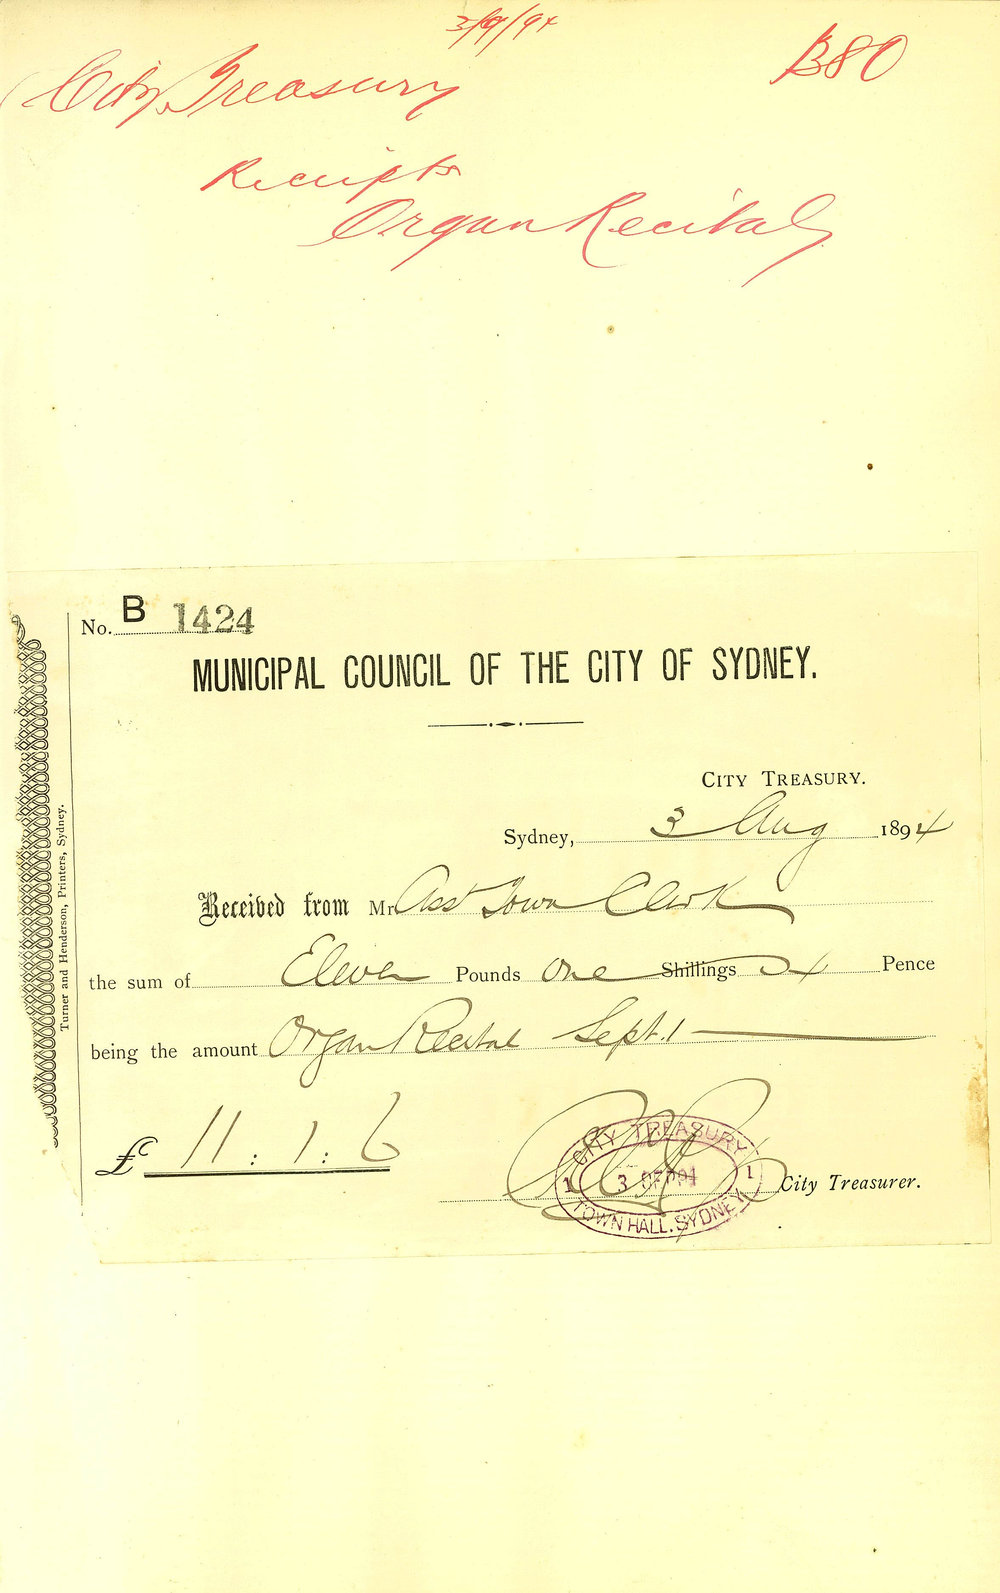 3/9/94
B80
City Treasury
Receipts
Organ Recital
No. B 1424
MUNICIPAL COUNCIL OF THE CITY OF SYDNEY.
CITY TREASURY.
Sydney, 3 Aug 1894
Received from Mr Asst Town Clerk
the sum of Eleven Pounds One Shillings Pence
being the amount Organ Recital Sept. 1
£ 11 : 1 : 6
City Treasurer.
CITY TREASURY
1 3 SEP 94 1
TOWN HALL. SYDNEY
Turner and Henderson, Printers, Sydney.